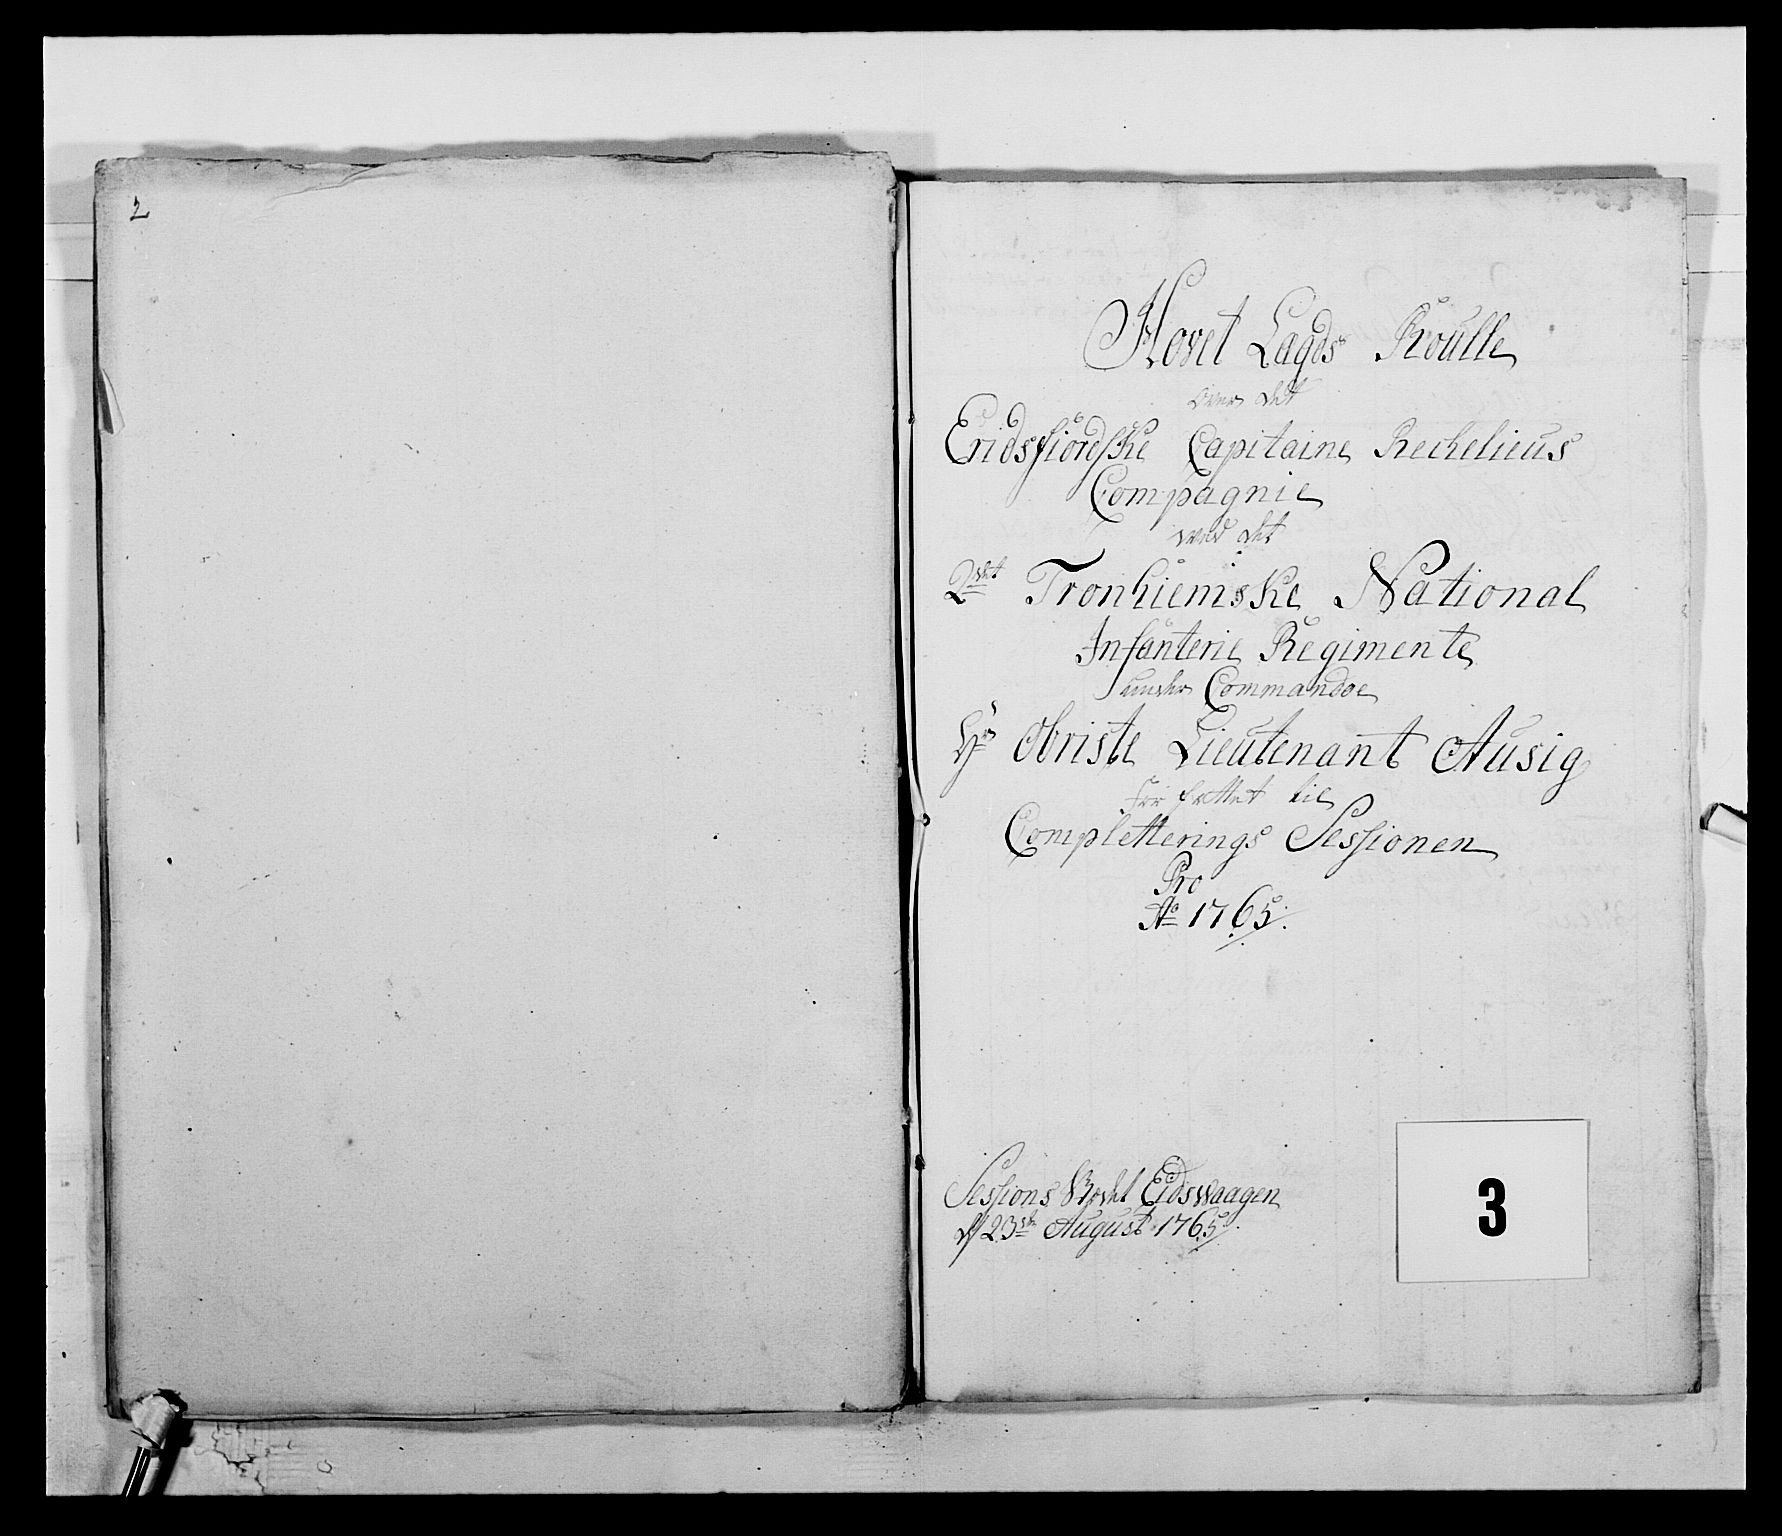 2
Hovet Lagds Roulle
over det
Eridsfiordske Capitaine Rechelieus
Compagnie
ved det
2det Tronhiemske National
Infanterie Regimente
under Commandoe
Hr Obriste Lieutenant Ausig
for fattet til
Completterings Sessionen
Pro
Ao 1765.
Sessions Stædet Eidswaagen
d 23de August 1765.
3